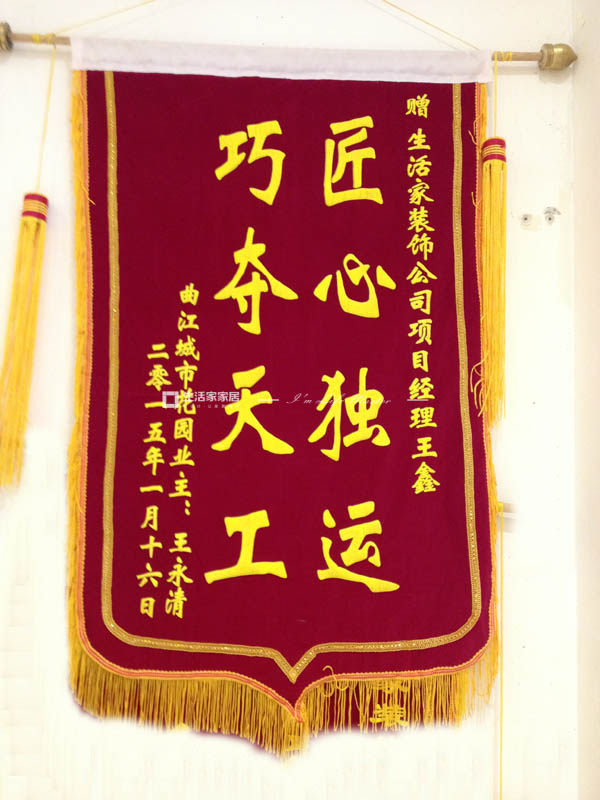 赠 生活家装饰公司项目经理王鑫
匠心独运
巧夺天工
曲江城市花园业主：王永清
二零一五年一月十六日
生活家家居